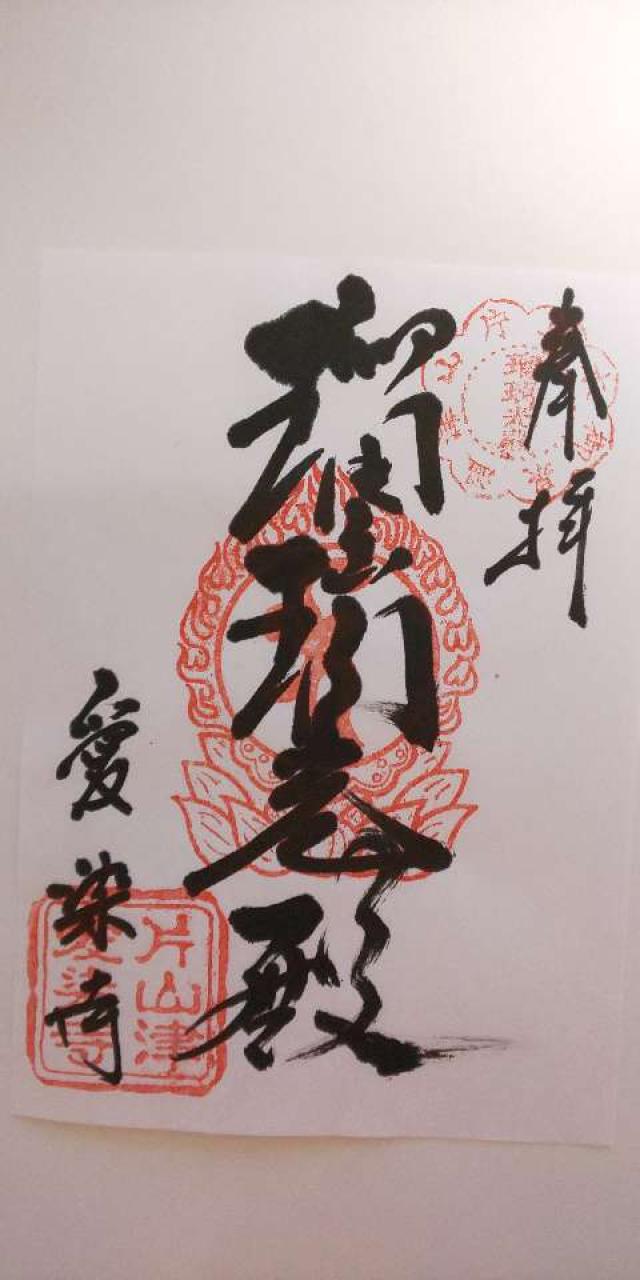 奉拝
瑠璃光殿
愛染寺
片山津
愛染寺